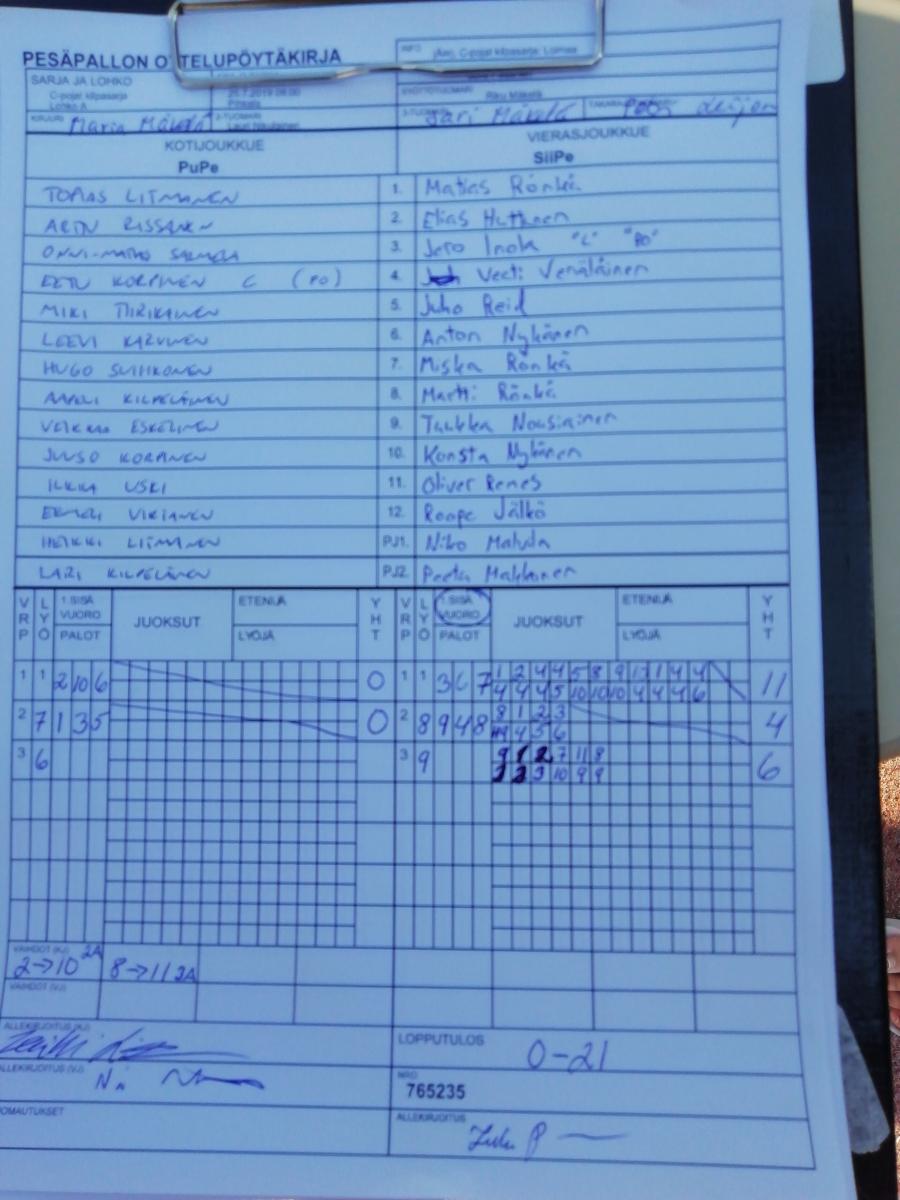 PESÄPALLON OTTELUPÖYTÄKIRJA
INFO C-pojat kilpasarja: Loimaa
SARJA JA LOHKO
C-pojat kilpasarja
Lohko A
25.7.2019 08:00
Riku Mäkelä
KIRJURI Maria Mäkelä
2-TUOMARI Lauri Nikulainen
Jari Mäkelä
KOTIJOUKKUE VIERASJOUKKUE
PuPe SiiPe
TOMAS LITMANEN 1. Matias Rönkä
ARTTU RISSANEN 2. Elias Huttunen
ONNI-MATIAS 3. Jero Inola "C" "PO"
EETU KORPINEN C (PO) 4. Veeti Venäläinen
MIKI TIIRIKAINEN 5. Juho Reid
LEEVI KARVINEN 6. Anton Nykänen
HUGO SUIHKONEN 7. Miska Rönkä
AAPELI KILPELÄINEN 8. Martti Rönkä
ESKELINEN 9. Tuukka Nousiainen
JUUSO KORPINEN 10. Konsta Nykänen
ILKKA USKI 11. Oliver Renes
12. Roope Jälkö
HEIKKI LITMANEN PJ1. Niko Matula
LARI KILPELÄINEN PJ2. Peetu Makkonen
VRP LYÖ 1.SISÄ VUORO PALOT JUOKSUT ETENIJÄ LYÖJÄ YHT VRP LYÖ 1.SISÄ VUORO PALOT JUOKSUT ETENIJÄ LYÖJÄ YHT
1 1 2 10 6 0 1 1 3 6 7 1 2 4 4 5 8 9 12 1 4 4 11
4 4 4 5 10 10 10 4 4 4 6
2 7 1 3 5 0 2 8 9 4 8 8 1 2 3 4
4 5 6
3 6 3 9 9 1 2 7 11 8 6
2 2 3 10 9 9
VAIHDOT (KJ)
2→10 2A 8→11 2A
VAIHDOT (VJ)
ALLEKIRJOITUS (KJ)
LOPPUTULOS 0-21
ALLEKIRJOITUS (VJ)
NRO
765235
HUOMAUTUKSET
ALLEKIRJOITUS